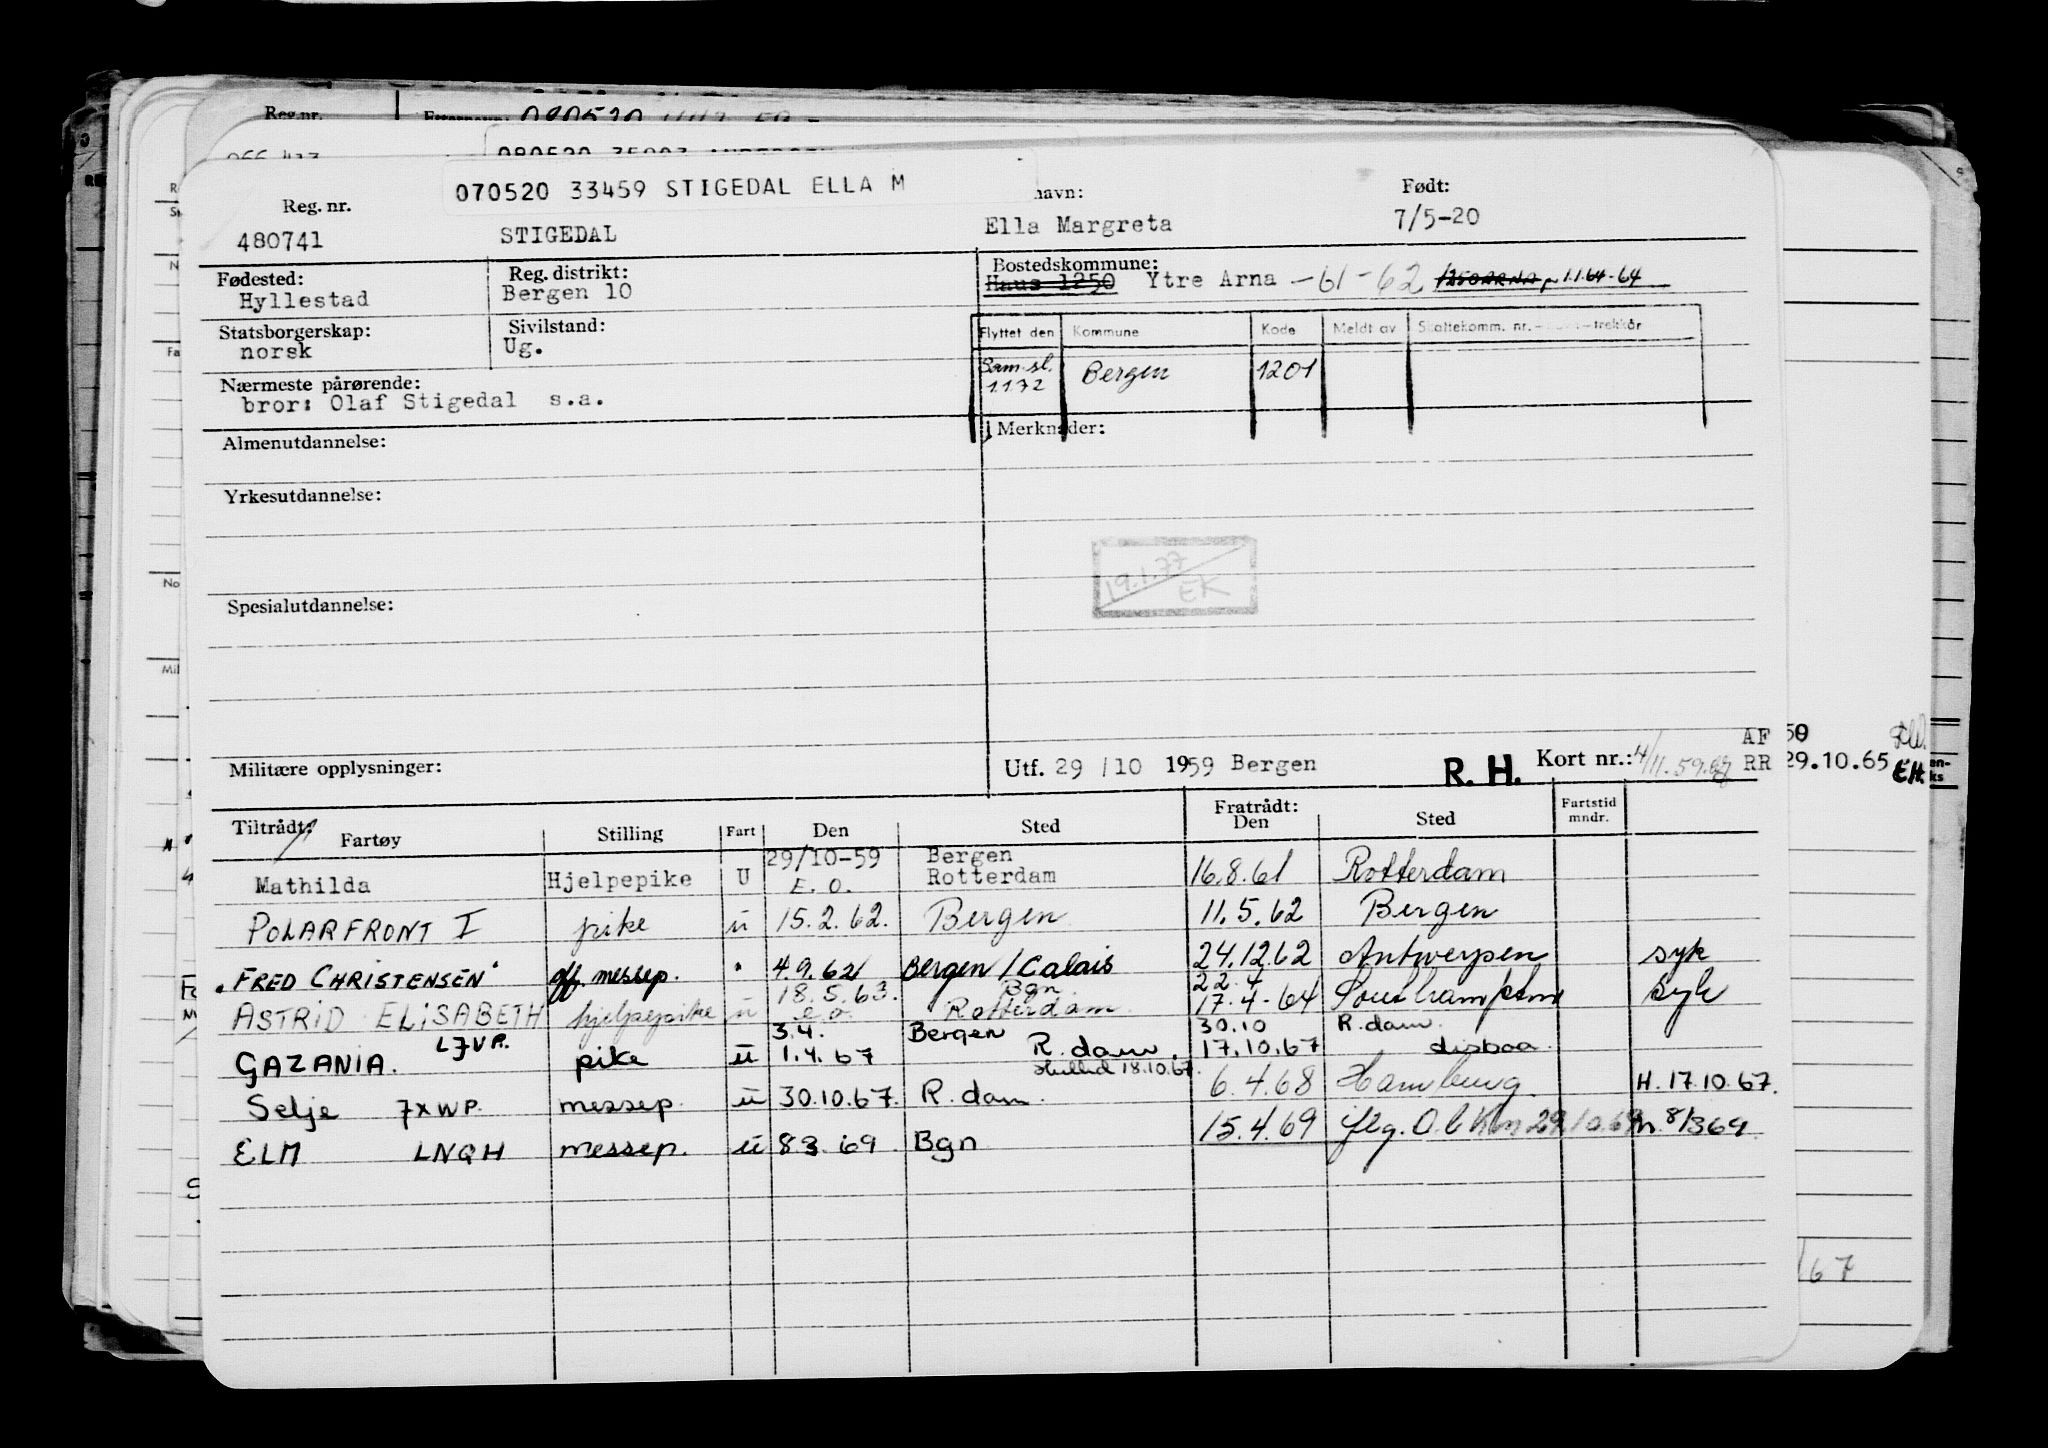 Reg.nr.
070520 33459 STIGEDAL ELLA M
Reg. nr. navn: Født:
480741 STIGEDAL Ella Margreta 7/5-20
Fødested: Reg. distrikt: Bostedskommune:
Hyllestad Bergen 10 Haus 1250 Ytre Arna -61-62 1.1.64-64
Statsborgerskap: Sivilstand: Flyttet den Kommune Kode Meldt av Skattekomm. nr.
norsk Ug.
Sam.sl. 1.1.72 Bergen 1201
Nærmeste pårørende:
bror: Olaf Stigedal s.a.
Almenutdannelse: Merknader:
Yrkesutdannelse:
19.1.77
EK
Spesialutdannelse:
AF 50
Militære opplysninger: Utf. 29 / 10 1959 Bergen R. H. Kort nr.: 4/11.59 RR 29.10.65 EH.
Tiltrådt: Fratrådt:
Fartøy Stilling Fart Den Sted Den Sted Fartstid mndr.
29/10-59 Bergen
Mathilda Hjelpepike U E. O. Rotterdam 16.8.61 Rotterdam
POLARFRONT I pike u 15.2.62. Bergen 11.5.62 Bergen
"FRED CHRISTENSEN" off. messep. " 4.9.62 Bergen/Calais 24.12.62 Antwerpen syk
18.5.63. Bgn 22.4
ASTRID ELISABETH hjelpepike u e.o. Rotterdam 17.4-64 Southampton Syk
3.4. Bergen 30.10 R.dam
GAZANIA. LJVR. pike u 1.4.67 R.dam. 17.10.67 Lisboa
18.10.67.
Selje JXWP. messep. u 30.10.67. R.dam. 6.4.68 Hamburg H.17.10.67.
ELM LNQH messep. u 8 3.69 Bgn 15.4.69 iflg. 29/10.69 m. 8/369
/67